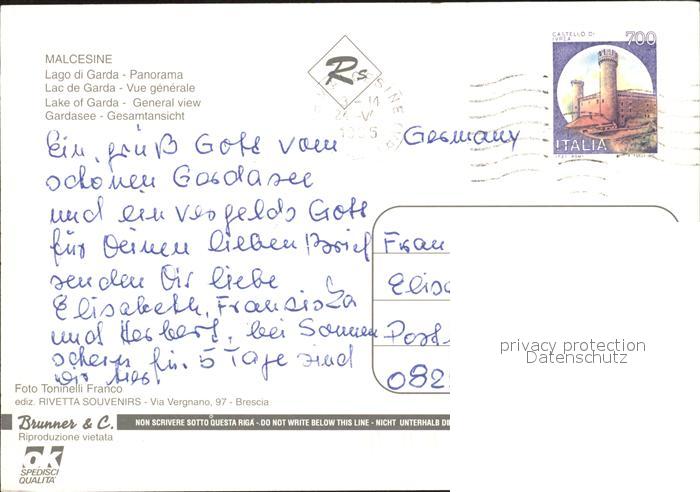 MALCESINE
Lago di Garda - Panorama
Lac de Garda - Vue générale
Lake of Garda - General view
Gardasee - Gesamtansicht
Rs
CASTELLO DI
IVREA
700
ITALIA
Germany
Ein grüß Gott vom
schönen Gardasee
und ein vergelds Gott
für Deinen lieben Brief
senden Dir liebe
Elisabeth, Franziska
und Herbert, bei Sonnen
schein für 5 Tage sind
wir hier
Frau
Elisa
Post
082
privacy protection
Datenschutz
Foto Toninelli Franco
ediz. RIVETTA SOUVENIRS - Via Vergnano, 97 - Brescia
Brunner & C.
NON SCRIVERE SOTTO QUESTA RIGA - DO NOT WRITE BELOW THIS LINE - NICHT UNTERHALB DI
Riproduzione vietata
ok
SPEDISCI
QUALITÀ